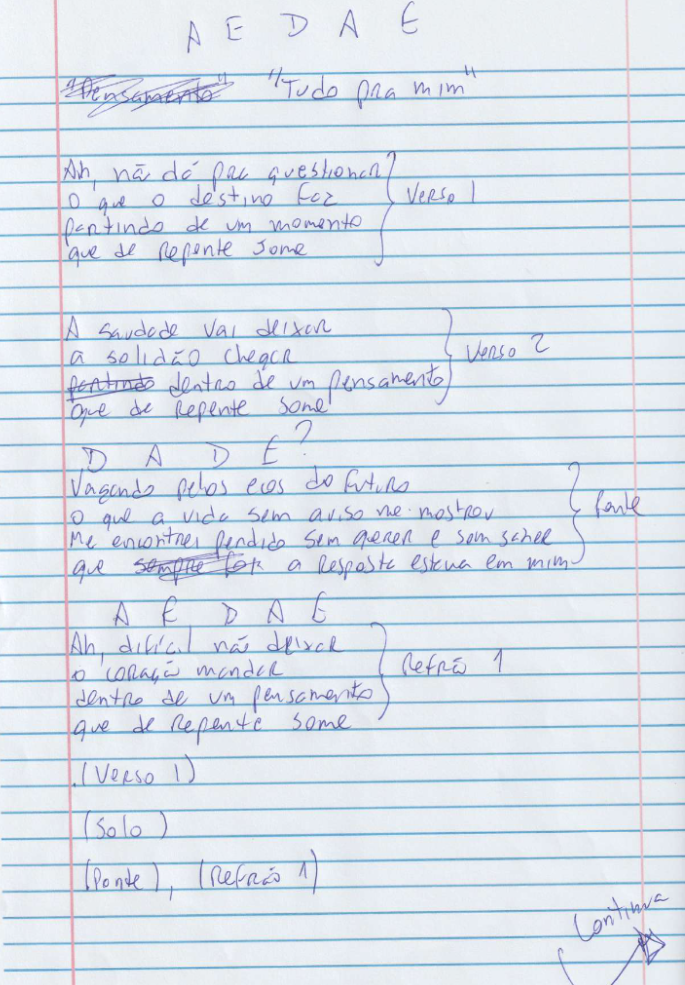 A E D A E
"Pensamento" "Tudo pra mim"
Ah, não dá pra questionar
O que o destino faz
partindo de um momento
que de repente some
Verso 1
A saudade vai deixar
a solidão chegar
partindo dentro de um pensamento
que de repente some
Verso 2
D A D E?
Vagando pelos ecos do futuro
O que a vida sem aviso me mostrou
Me encontrei perdido sem querer e sem saber
que sempre foi a resposta estava em mim
Ponte
A E D A E
Ah, difícil não deixar
o coração mandar
dentro de um pensamento
que de repente some
Refrão 1
(Verso 1)
(Solo)
(Ponte), (Refrão 1)
Continua